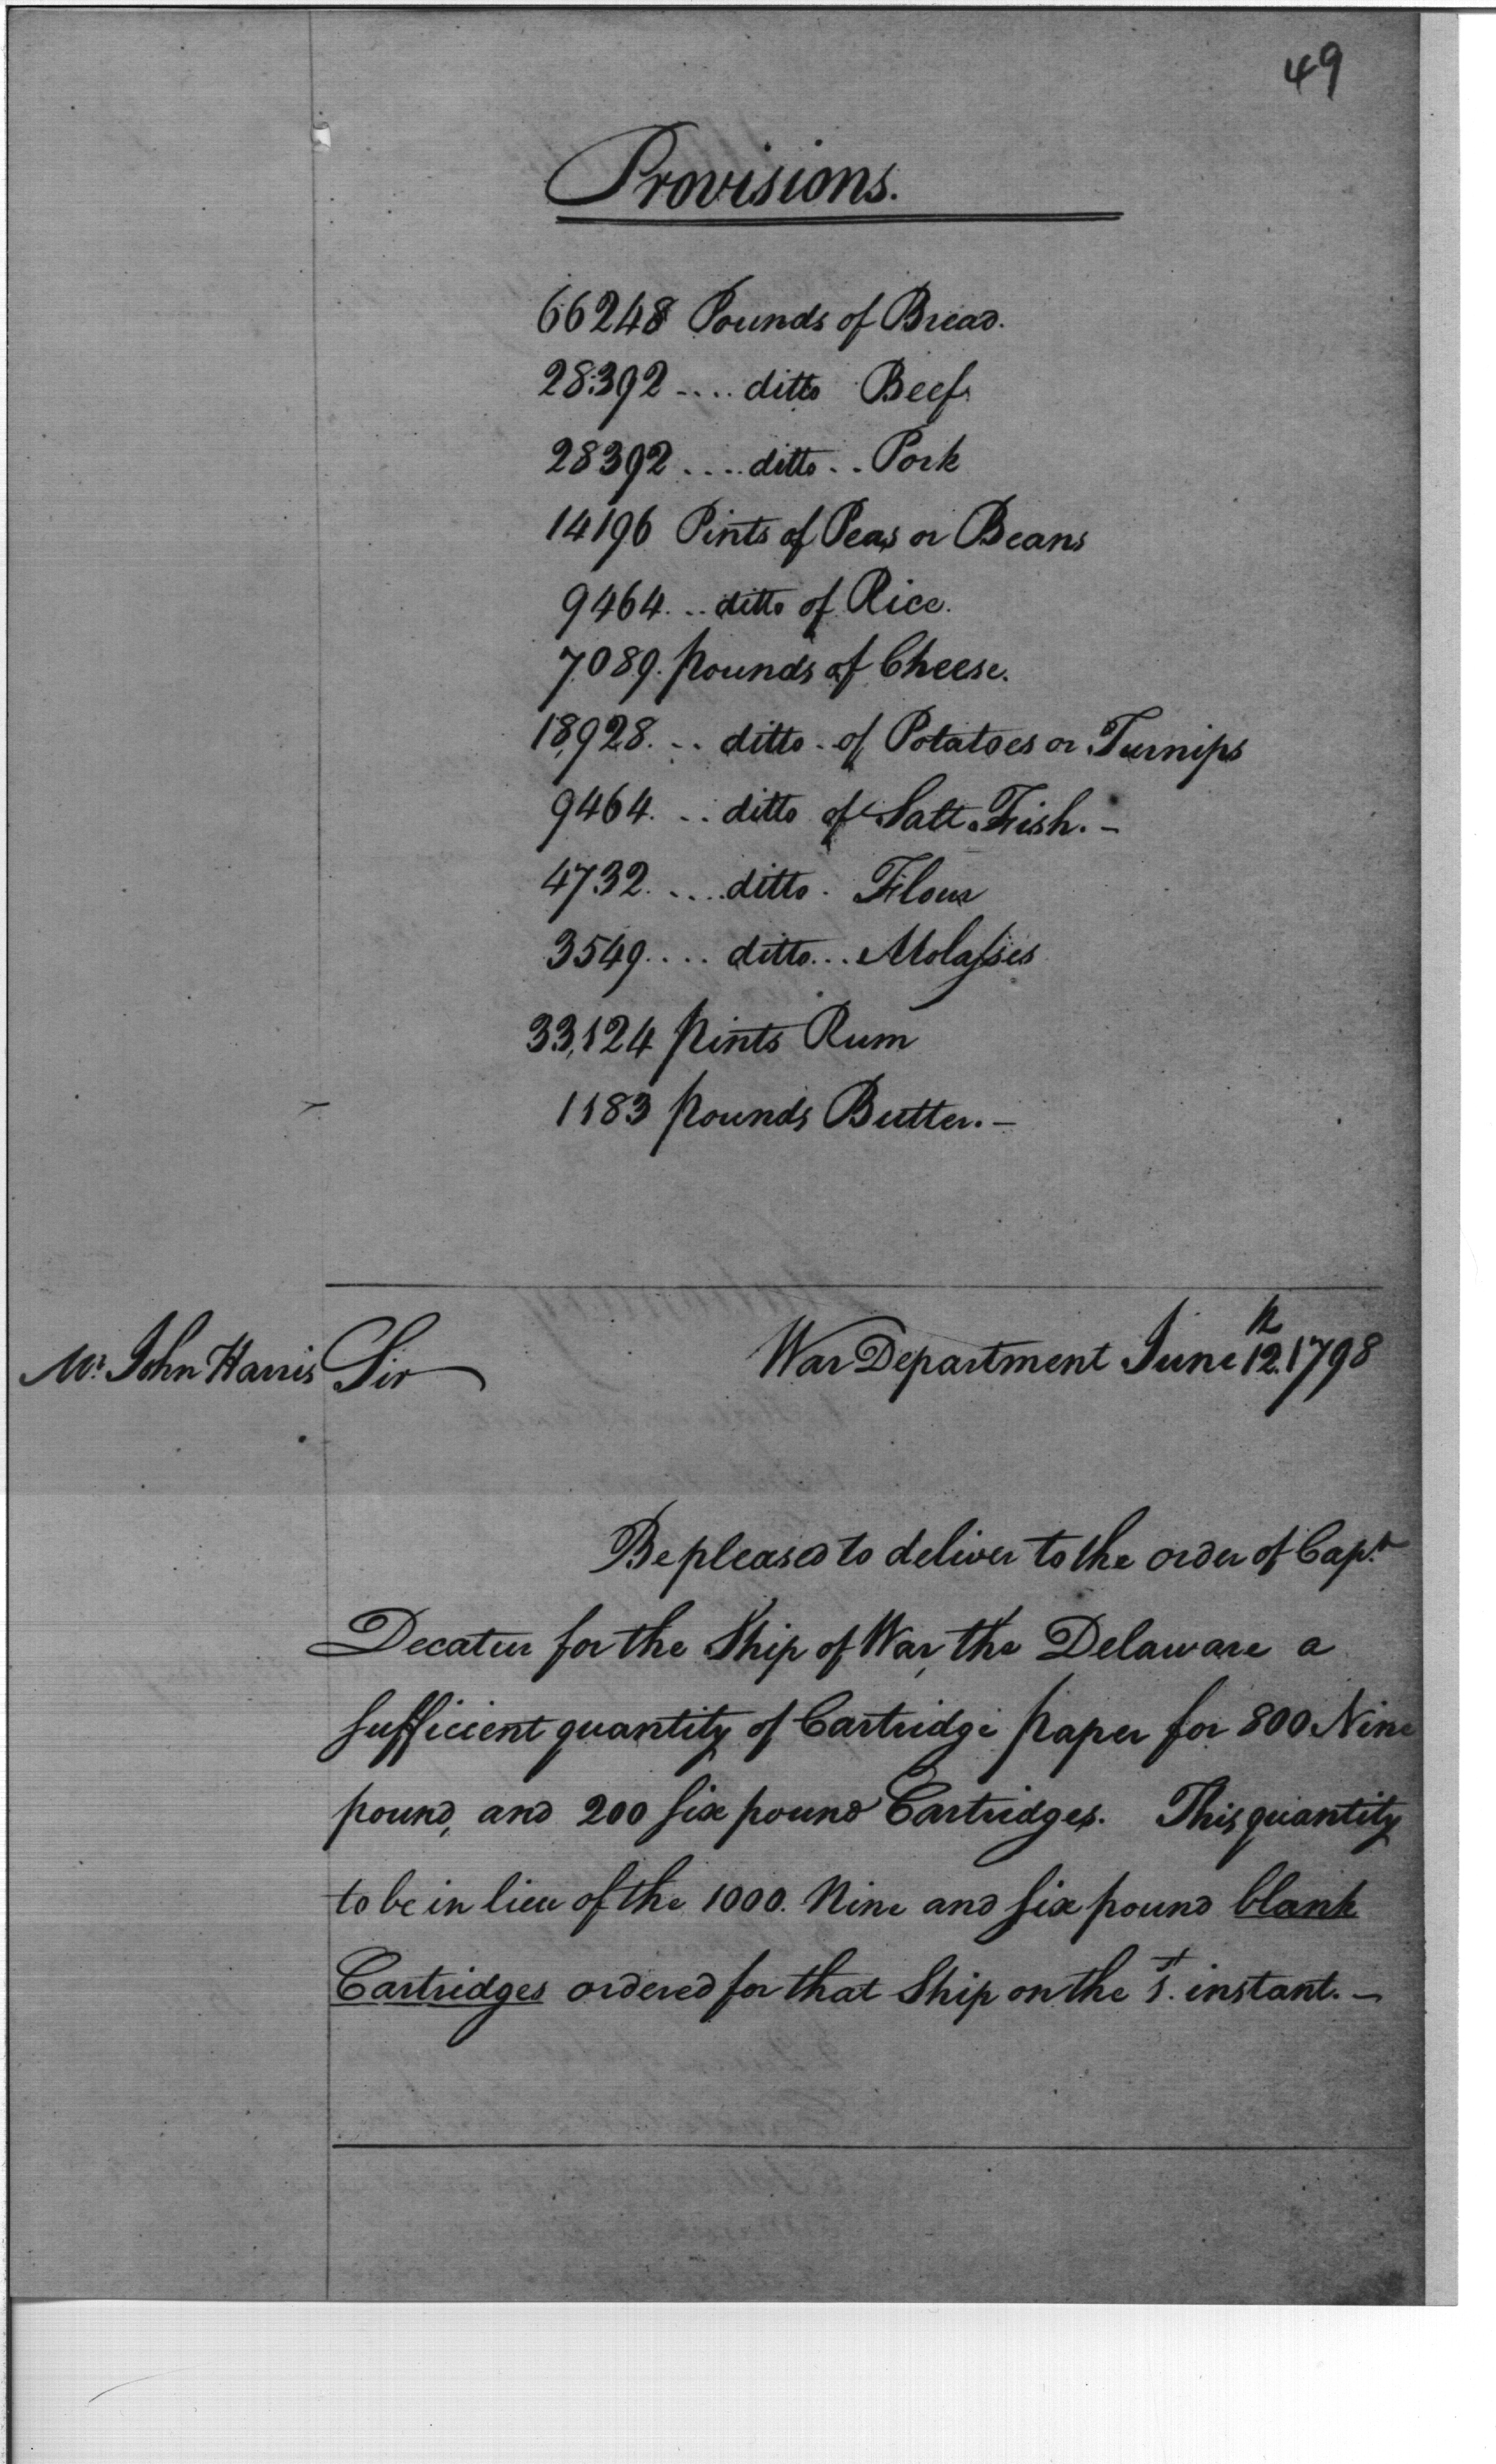 49
Provisions.
66248 Pounds of Bread.
28392 .... ditto Beef
28392 .... ditto .. Pork
14196 Pints of Peas or Beans
9464 ... ditto of Rice.
7089. pounds of Cheese.
18,928. ... ditto - of Potatoes or Turnips
9464. ... ditto of Salt Fish. -
4732. .... ditto. Flour
3549 .... ditto... Molasses
33,124 pints Rum
1183 pounds Butter. -
Mr. John Harris Sir War Department June 12th 1798
Be pleased to deliver to the order of Capt.
Decatur for the Ship of War, the Delaware a
sufficient quantity of Cartridge paper for 800 Nine
pound, and 200 six pound Cartridges. This quantity
to be in lieu of the 1000. Nine and six pound blank
Cartridges ordered for that Ship on the 1st. instant. -